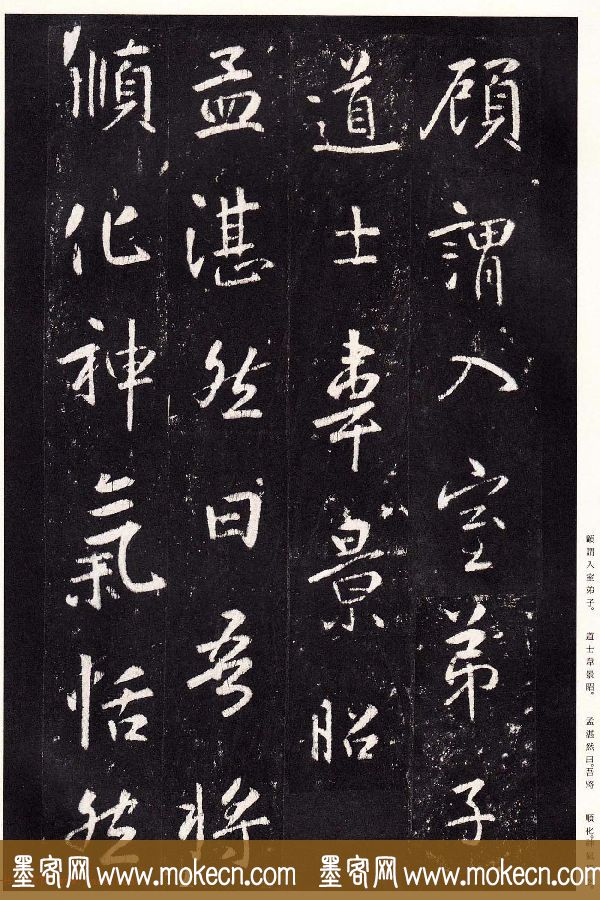 顧謂入室弟子
道士韋景昭
孟湛然曰吾將
順化神氣恬然
顧謂入室弟子。 道士韋景昭。 孟湛然曰。吾將 順化。神氣
墨客网 www.mokecn.com 墨客网 www.mokecn.com